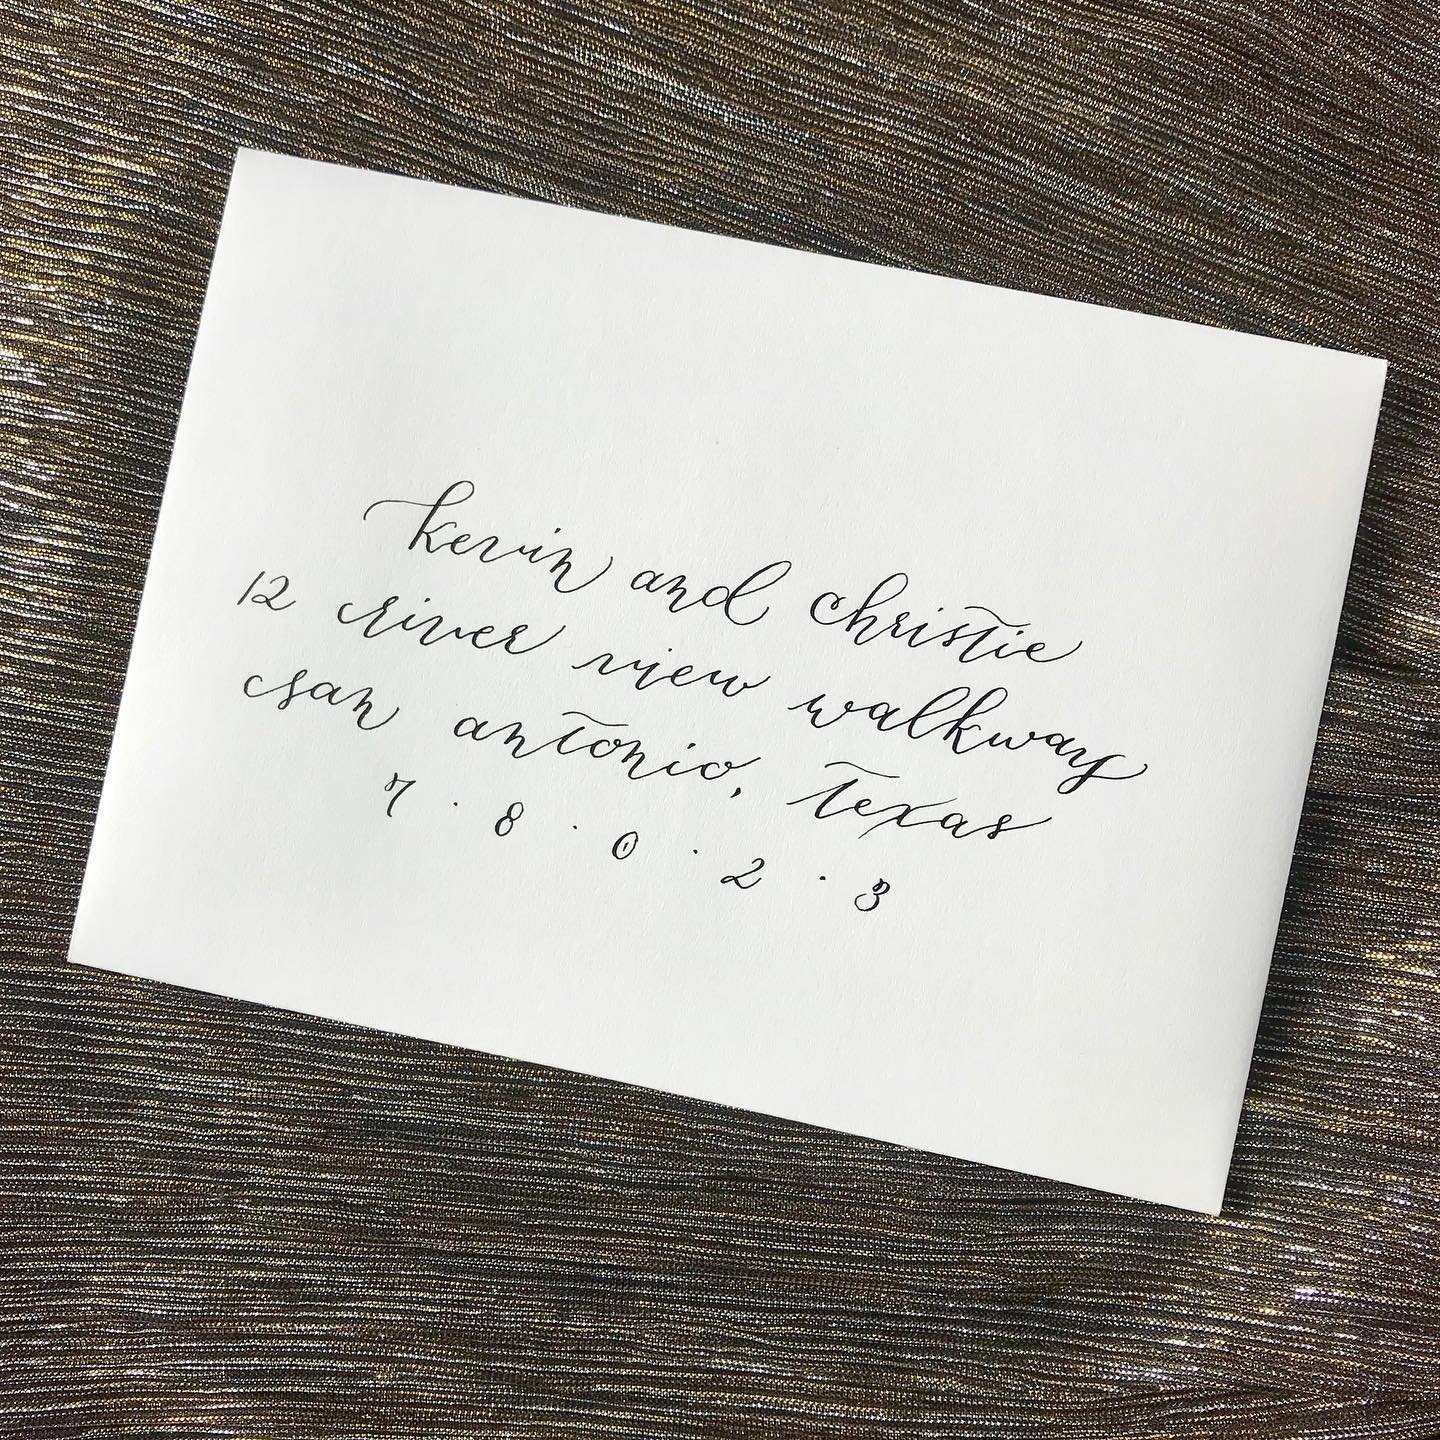 kevin and christie
12 river view walkway
san antonio, texas
7 · 8 · 0 · 2 · 3